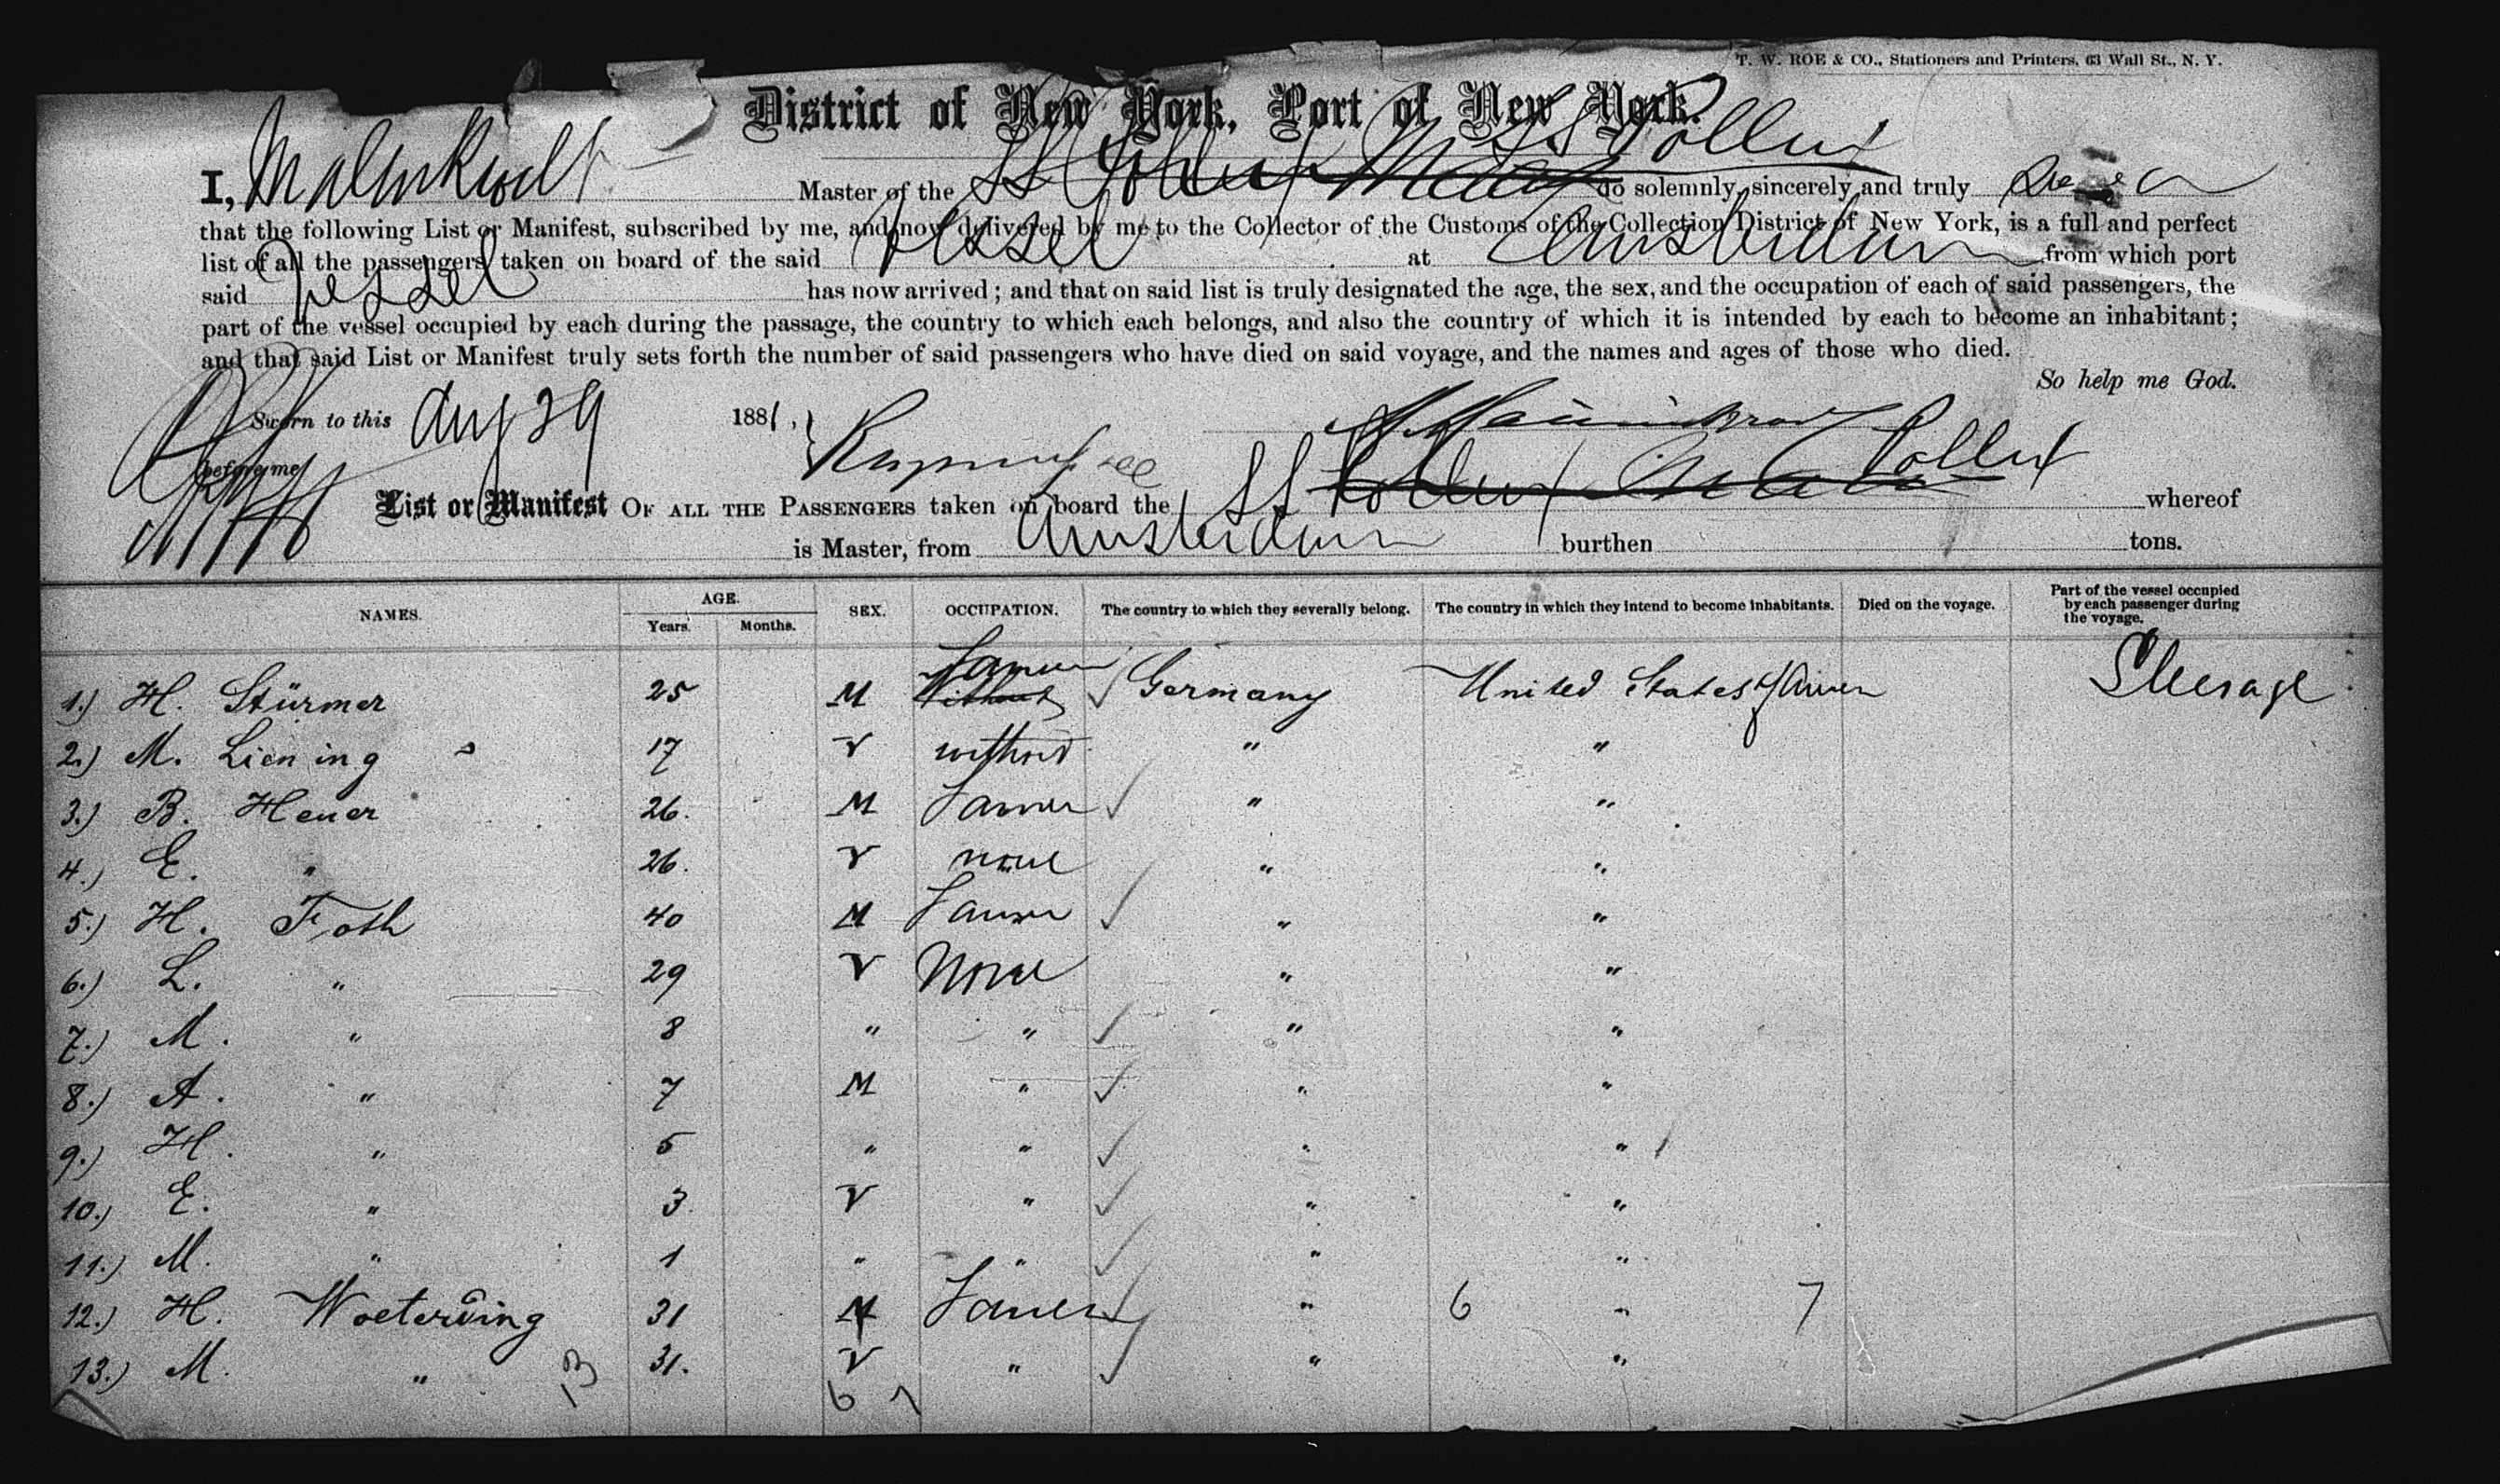 T. W. ROE & CO., Stationers and Printers, 63 Wall St., N. Y.
District of New York, Port of New York.
SS Pollux
I, Master of the SS Pollux do solemnly, sincerely and truly
that the following List or Manifest, subscribed by me, and now delivered by me to the Collector of the Customs of the Collection District of New York, is a full and perfect
list of all the passengers taken on board of the said Vessel at Amsterdam from which port
said Vessel has now arrived; and that on said list is truly designated the age, the sex, and the occupation of each of said passengers, the
part of the vessel occupied by each during the passage, the country to which each belongs, and also the country of which it is intended by each to become an inhabitant;
and that said List or Manifest truly sets forth the number of said passengers who have died on said voyage, and the names and ages of those who died.
So help me God.
Sworn to this Aug 29 1881,
before me
Pollux
List or Manifest OF ALL THE PASSENGERS taken on board the SS Pollux whereof
is Master, from Amsterdam burthen tons.
NAMES. AGE. Years. Months. SEX. OCCUPATION. The country to which they severally belong. The country in which they intend to become inhabitants. Died on the voyage. Part of the vessel occupied by each passenger during the voyage.
1.) H. Stürmer 25 M without Germany United States of Steerage
2.) M. Liening 17 V without " "
3.) B. Heuer 26. M " "
4.) E. " 26. V none " "
5.) H. Foth 40 M " "
6.) L. " 29 V None " "
7.) M. " 8 " " " "
8.) A. " 7 M " " "
9.) H. " 5 " " " "
10.) E. " 3 V " " "
11.) M. " 1 " " " "
12.) H. Woeterding 31 M " 6 " 7
13.) M. " 13 31. V " " "
6 7